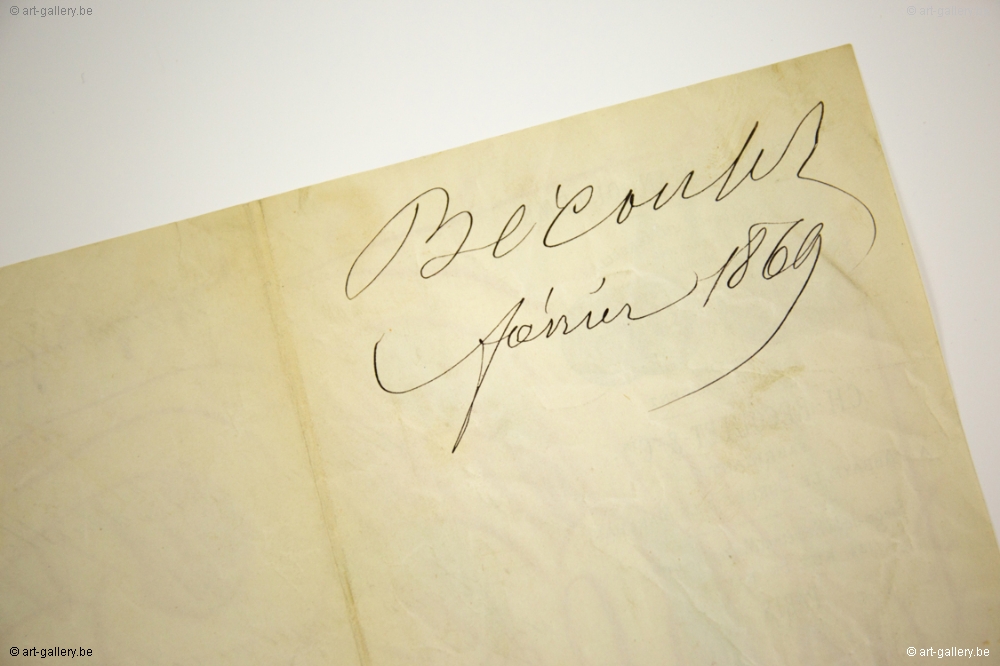 © art-gallery.be
© art-gallery.be
Bécoulet
février 1869
© art-gallery.be
© art-gallery.be